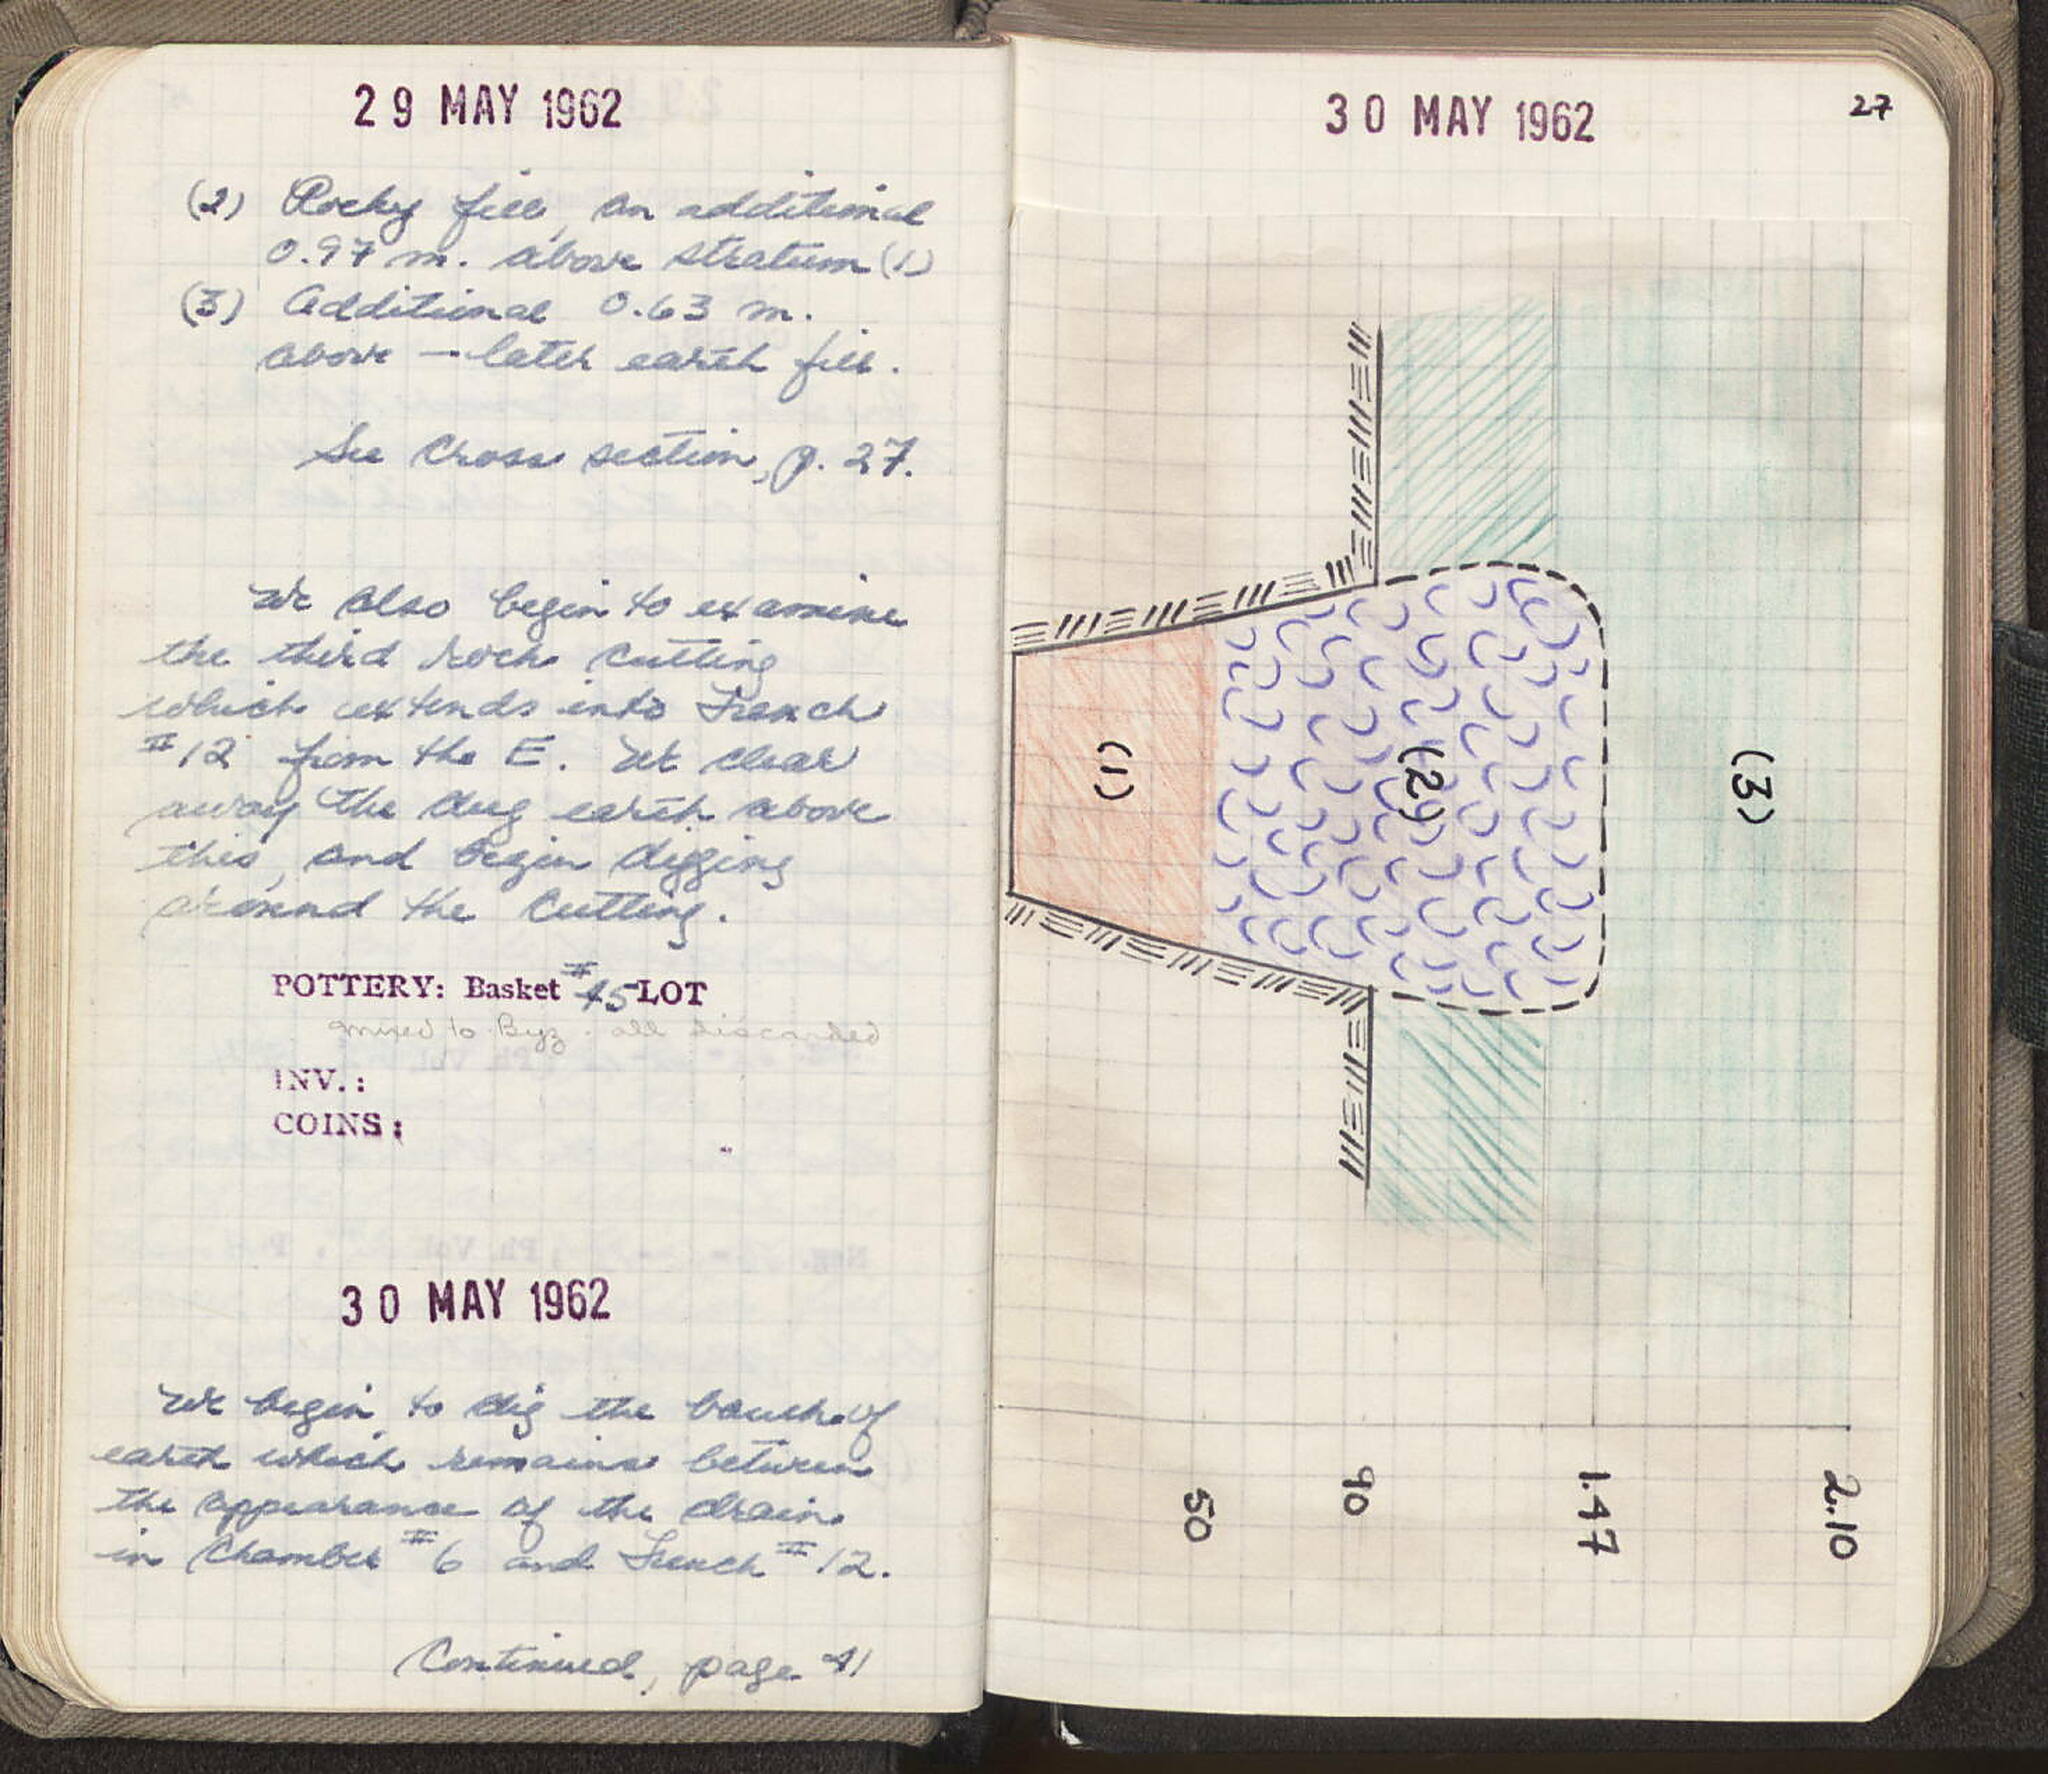 29 MAY 1962
(2) Rocky fill, an additional
0.97 m. above stratum (1)
(3) Additional 0.63 m.
above — later earth fill.
See cross section, p. 27.
We also begin to examine
the third rock cutting
which extends into Trench
#12 from the E. We clear
away the dug earth above
this, and begin digging
around the cutting.
POTTERY: Basket #45 LOT
mixed to Byz. all discarded
INV.:
COINS:
30 MAY 1962
We begin to dig the baulk of
earth which remains between
the appearance of the drain
in Chamber #6 and Trench #12.
Continued, page 41
30 MAY 1962
27
(1)
(2)
(3)
50
90
1.47
2.10